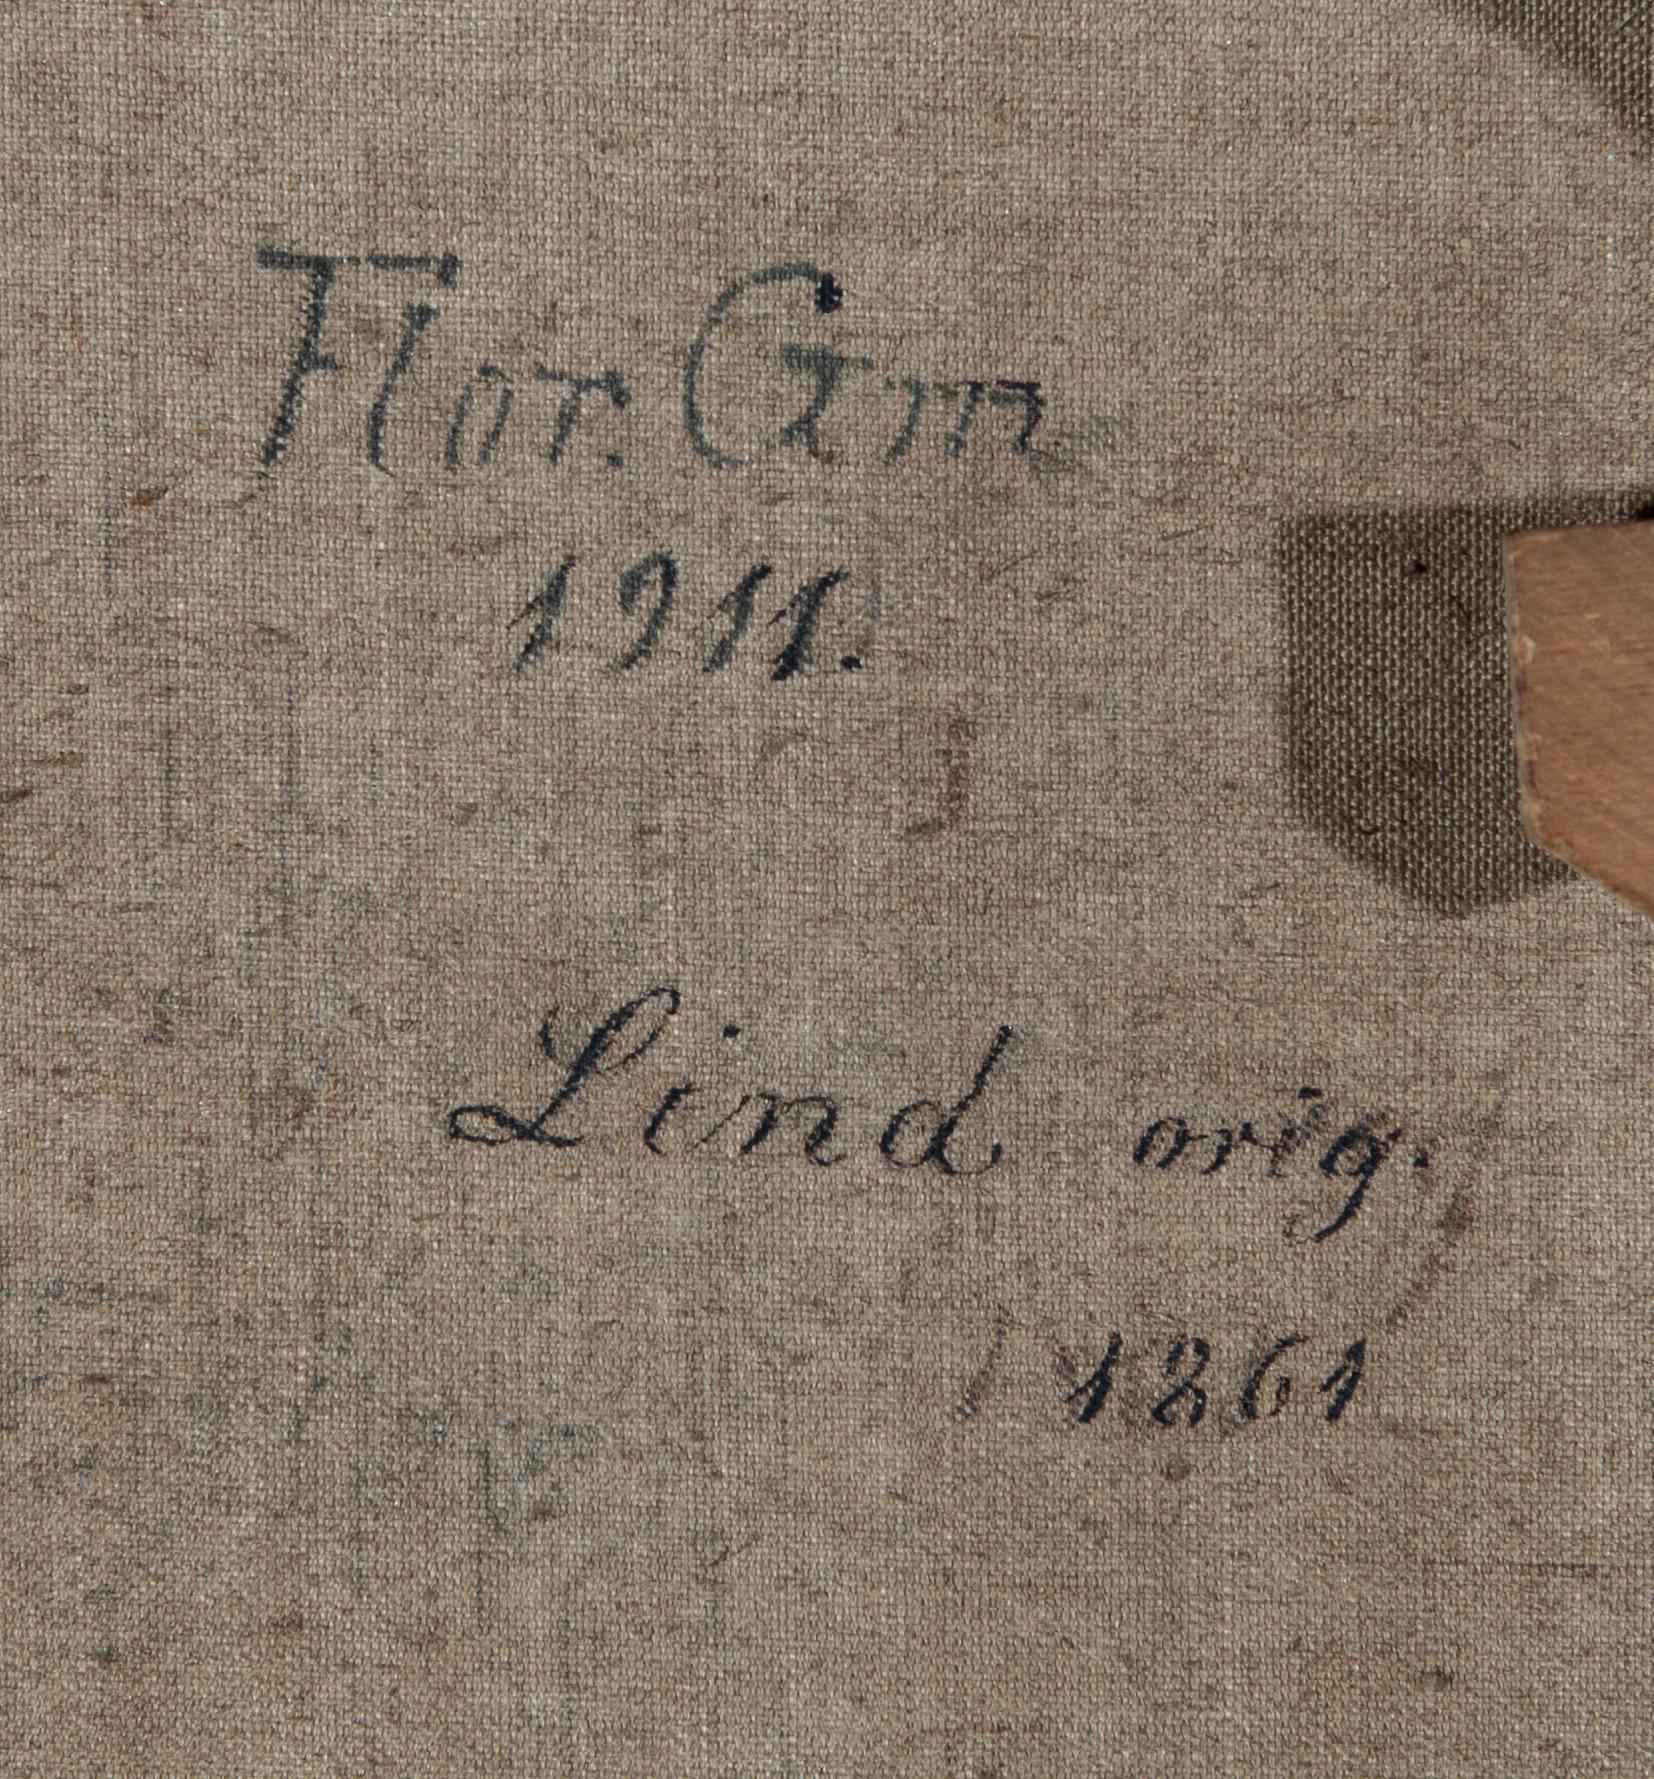 Flor. Gmz
1911.
Lind orig.
1261